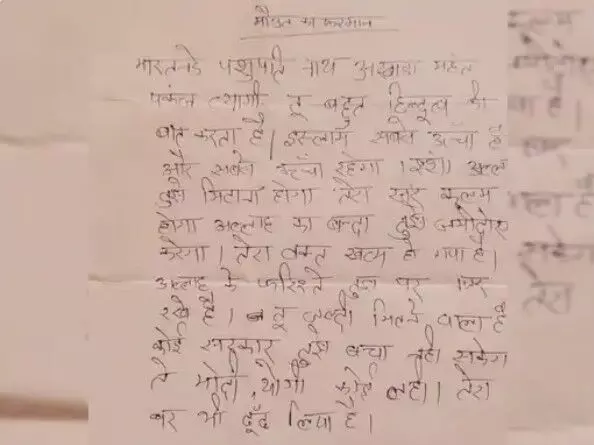 मौत का फरमान
मारतनडे पशुपति नाथ अखाडा महंत
पंकज त्यागी तू बहुत हिन्दुत्व की
बात करता है। इस्लाम सबसे ऊँचा है
और सबसे ऊँचा रहेगा। इंशा अल्ला
तुझे मिटाना होगा तेरा सर कलम
होगा अल्लाह का बन्दा तुझे
करेगा। तेरा वक्त खत्म हो गया है।
अल्लाह के फरिश्ते तुझ पर नजर
रखे है। तू जल्दी मिटने वाला है
कोई सरकार तुझे बचा नही सकेगा
ने मोदी, योगी कोई नही। तेरा
घर भी ढूँढ लिया है।